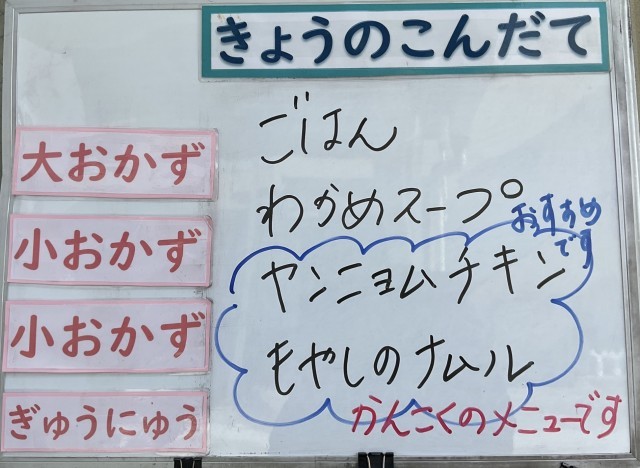 きょうのこんだて
ごはん
大おかず
わかめスープ
おすすめ
です
小おかず
ヤンニョムチキン
小おかず
もやしのナムル
ぎゅうにゅう
かんこくのメニューです